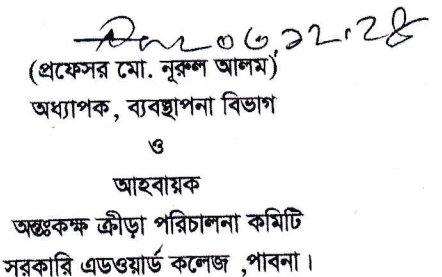 ০৩.১২.২৪
(প্রফেসর মো. নূরুল আলম)
অধ্যাপক, ব্যবস্থাপনা বিভাগ
ও
আহবায়ক
অন্তঃকক্ষ ক্রীড়া পরিচালনা কমিটি
সরকারি এডওয়ার্ড কলেজ ,পাবনা।